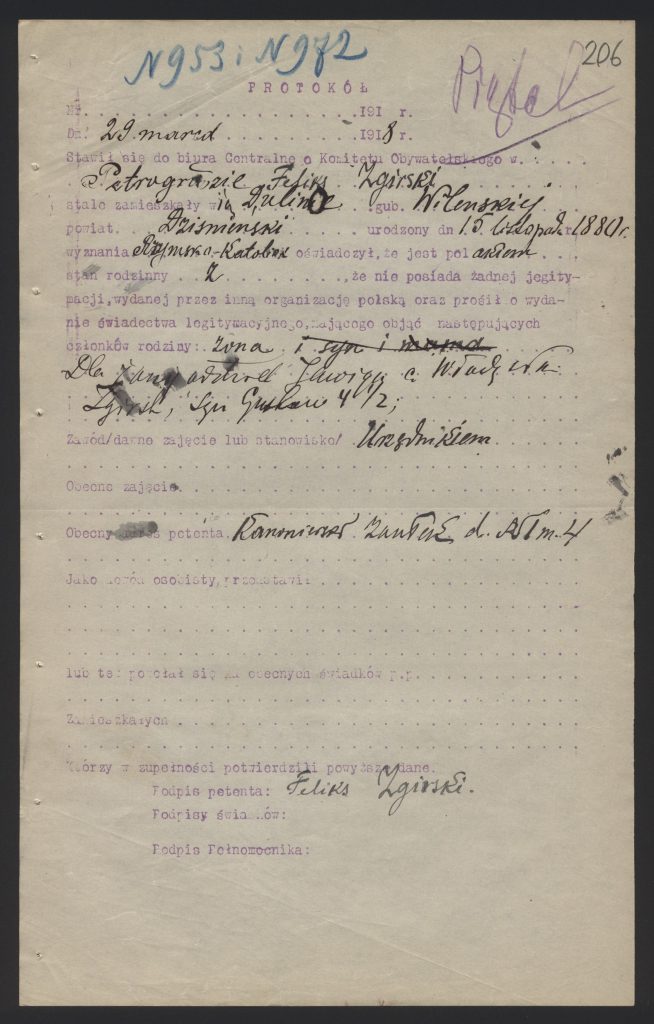 N953 i N972
206
PROTOKÓŁ
Nr. . . . . . . . . . . . . . . . . . . .191 r.
Dn. 29 marca . . . . . . . . . . 1918 r.
Stawił się do biura Centralnego Komitetu Obywatelskiego w. . .
Petrogradzie Feliks Zgirski
stale zamieszkały w gub. Wilenskiej
powiat. Dzisnienski . . . . . urodzony dn 15 listopad. r 1880 r.
wyznania Rzymsko-Katolick oświadczył, że jest polakiem
stan rodzinny . 2 . . . . . . . . ,że nie posiada żadnej legity-
macji,wydanej przez inną organizację polską oraz prosił o wyda-
nie świadectwa legitymacyjnego,mającego objąć następujących
członków rodziny: żona i syn i mama
Dla żony Jadwigi
Zgirsk, syn 4 1/2,
Zawód/dawne zajęcie lub stanowisko/ Urzędnikiem
Obecne zajęcie.
Obecny adres petenta. zaułek d. m. 4
Jako dowód osobisty,przedstawił
lub też powołał się na obecnych świadków p.p.
Zamieszkałych
Którzy w zupełności potwierdzili powyższe dane.
Podpis petenta: Feliks Zgirski.
Podpisy świadków:
Podpis Pełnomocnika: